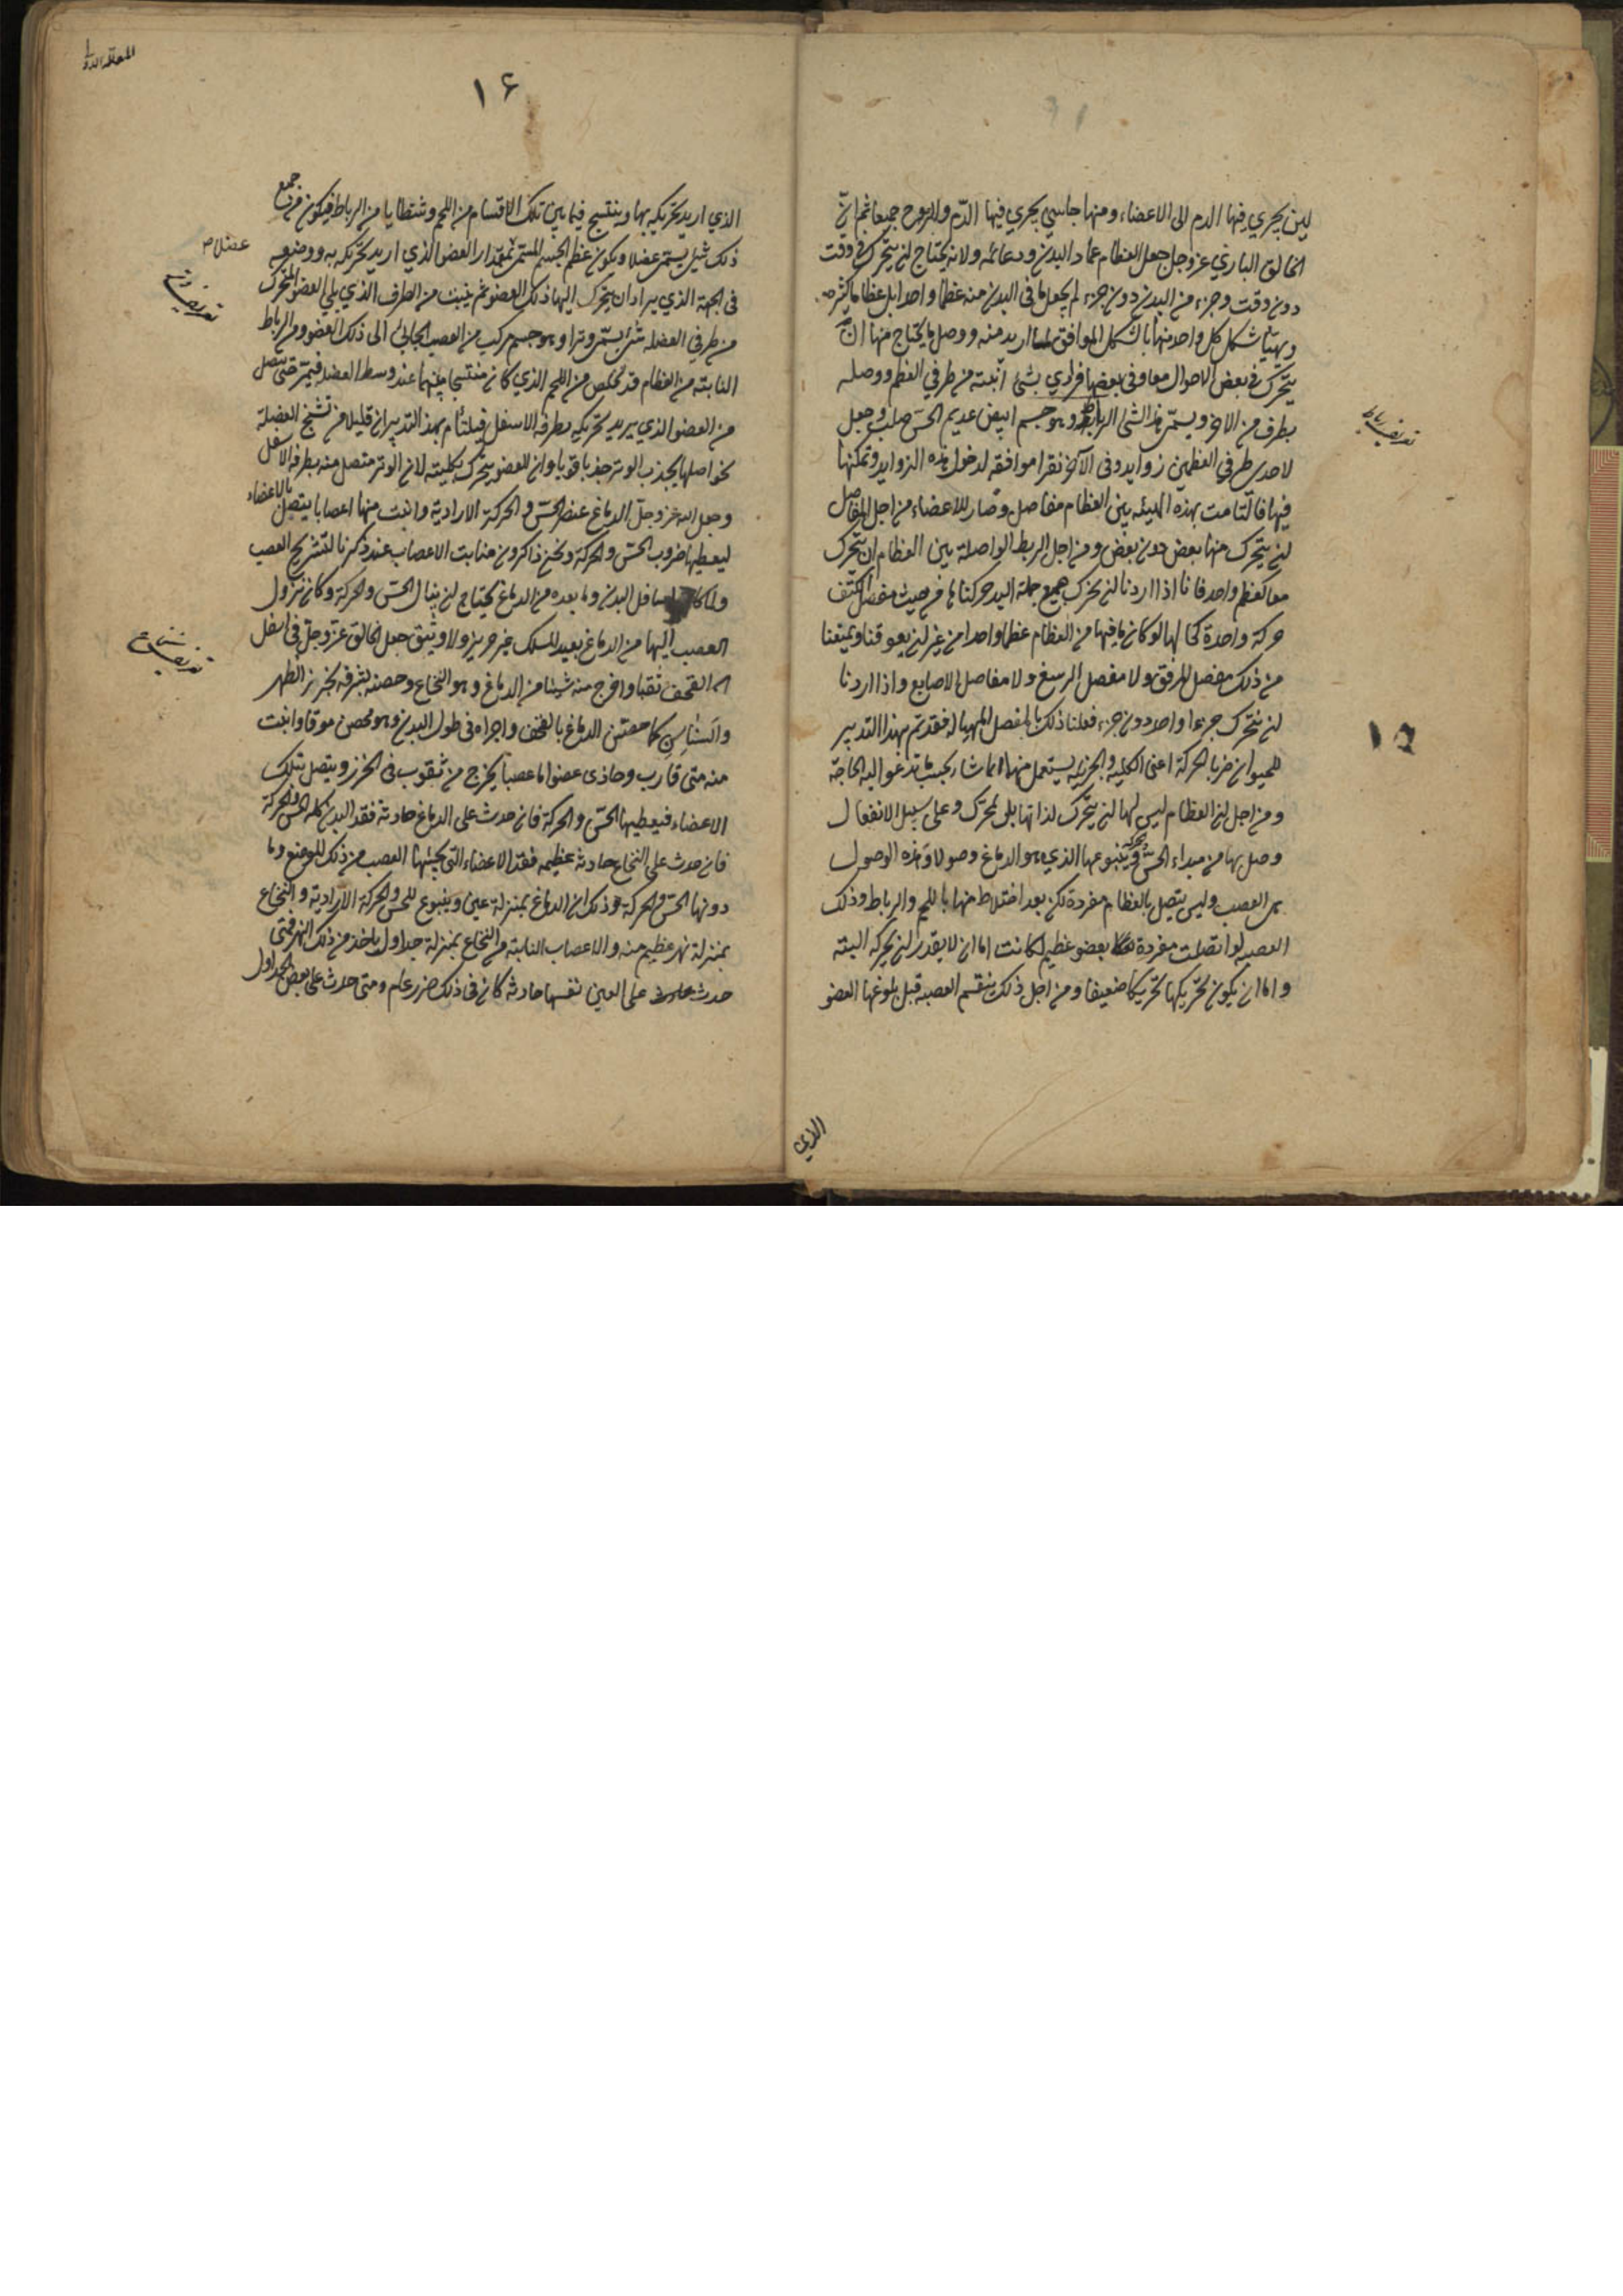 لين يجري فيها الدم الى الاعضاء ومنها جاسي يجري فيها الدّم والروح جميعا ثم انّ
الخالق الباري عز وجل جعل العظام عماد البدن ودعائمه ولانه يحتاج لن يتحرك في وقت
دون وقت وجزء من البدن دون جزء لم يجعل ما في البدن منه عظما واحدا بل عظاما كثيره
وهيّأ شكل كل واحد منها بالشكل الموافق لما اريد منه ووصل ما يحتاج منها ان
يتحرك في بعض الاحوال معا وفي بعضها فرادي بشئ انبته من طرفي العظم ووصله
بطرف من الاخر ويسمّى هذا الشئ الرباط وهو جسم ابيض عديم الحسّ صلب وجعل
لاحدى طرفي العظمين زوايد وفي الآخر نقرا موافقه لدخول هذه الزوايد وتمكنها
فيها فالتامت بهذه الهيئه بين العظام مفاصل وصار للاعضاء من اجل المفاصل
لن يتحرك منها بعض دون بعض ومن اجل الربط الواصلة بين العظام ان يتحرك
معا كعظم واحد فانا اذا اردنا لن نحرك جميع جملة اليد حركناها من حيث مفصل الكتف
حركة واحدة كحالها لو كان ما فيها من العظام عظما واحدا من غير لن يعوقنا ويمنعنا
من ذلك مفصل المرفق ولا مفصل الرسغ ولا مفاصل الاصابع واذا اردنا
لن نتحرك جزءا واحدا دون جزء فعلنا ذلك بالمفصل المهيا له فقد تم بهذا التدبير
للحيوان ضربا الحركة اعني الكلية والجزئيه يستعمل منها ما شا بحيث ما تدعو اليه الحاجة
ومن اجل لن العظام ليس لها لن يتحرك لذاتها بل بمحرك وعلى سبيل الانفعال
وصل بها من مبداء الحس والحركة وينبوعها الذي هو الدماغ وصولا وهذه الوصول
هي العصب وليس يتصل بالعظام مفردة لكن بعد اختلاط منها باللحم والرباط وذلك
العصبه لو اتصلت مفردة بعضو عظيم لكانت اما ان لا يقدر لن يحركه البتة
واما ان يكون تحريكها تحريكا ضعيفا ومن اجل ذلك ينقسم العصبه قبل بلوغها العضو
الذي
تعريف رباط
١٥
١٦
الذي اريد تحريكه بها وينتسج فيما بين تلك الاقسام من اللحم وشظايا من الرباط فيكون من جميع
ذلك شئ يسمى عضلا ويكون عظم الجسم المسمى بمقدار العضو الذي اريد تحريكه به ووضعه
في الجهة الذي يراد ان يتحرك اليها ذلك العضو ثم ينبت من الطرف الذي يلي العضو المتحرك
من طرفي العضله شئ يسمى وترا وهو جسم مركب من العصب الجائي الى ذلك العضو والرباط
النابته من العظام قد تخلص من اللحم الذي كان منتسجا بينهما عند وسط العضله فيمر حتى يتصل
من العضو الذي يريد تحريكه بطرفه الاسفل فيلتام بهذا التدبير ان قليلا من تشنج العضلة
نحو اصلها يجذب الوتر جذبا قويا وان العضو يتحرك بكليته لان الوتر متصل منه بطرفه الاسفل
وجعل الله عز وجل الدماغ عنصر الحسّ والحركة الارادية وانبت منها اعصابا يتصل بالاعضاء
ليعطيها ضروب الحس والحركة ونحن ذاكرون منابت الاعصاب عند ذكرنا لتشريح العصب
ولما كان اسافل البدن وما بعده من الدماغ يحتاج لن ينال الحسّ والحركة وكان نزول
العصب اليها من الدماغ بعيد المسلك غير حريز ولا وثيق جعل الخالق عز وجل في اسفل
القحف ثقبا واخرج منه شيئا من الدماغ وهو النخاع وحصنه لشرفه بخرز الظهر
والسناسن كما حصّن الدماغ بالقحف واجراه في طول البدن وهو محصن موقا وانبت
منه متى قارب وحاذى عضوا ما عصبا يخرج من ثقوب في الخرز ويتصل بتلك
الاعضاء فيعطيها الحس والحركة فان حدث على الدماغ حادثة فقد البدن كله الحس والحركة
فان حدث على النخاع حادثه عظيمه فقد الاعضاء التي يجيئها العصب من ذلك الموضع وما
دونها الحس والحركة وذلك ان الدماغ بمنزلة عين وينبوع للحس والحركة الارادية والنخاع
بمنزلة نهر عظيم منه والاعصاب النابتة من النخاع بمنزلة جداول ياخذ من ذلك النهر فمتى
حدث حادث على العين نفسها حادثه كان في ذلك ضرر عام ومتى حدث على بعض الجداول
عضلات
تعريف وتر
تعريف نخاع